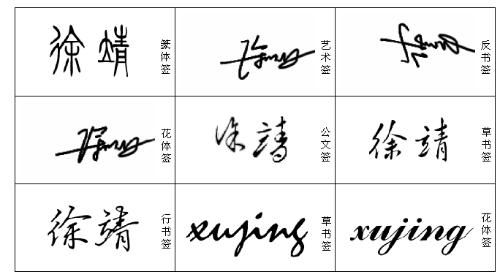 徐靖
篆体签
艺术签
反书签
花体签
徐靖
公文签
徐靖
草书签
徐靖
行书签
xujing
草书签
xujing
花体签